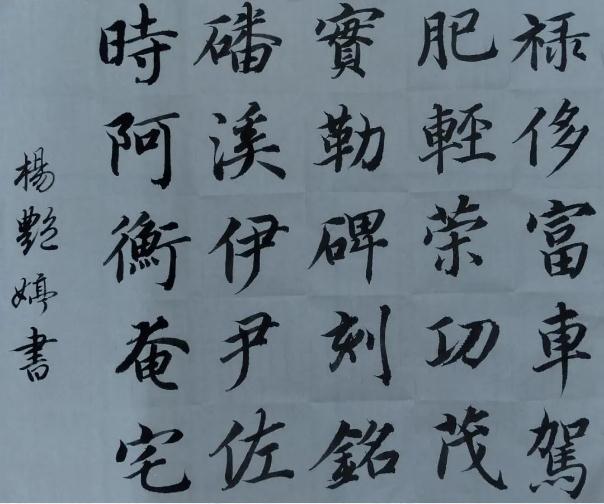 禄侈富車駕
肥輕荣功茂
實勒碑刻銘
磻溪伊尹佐
時阿衡奄宅
楊艷婷書